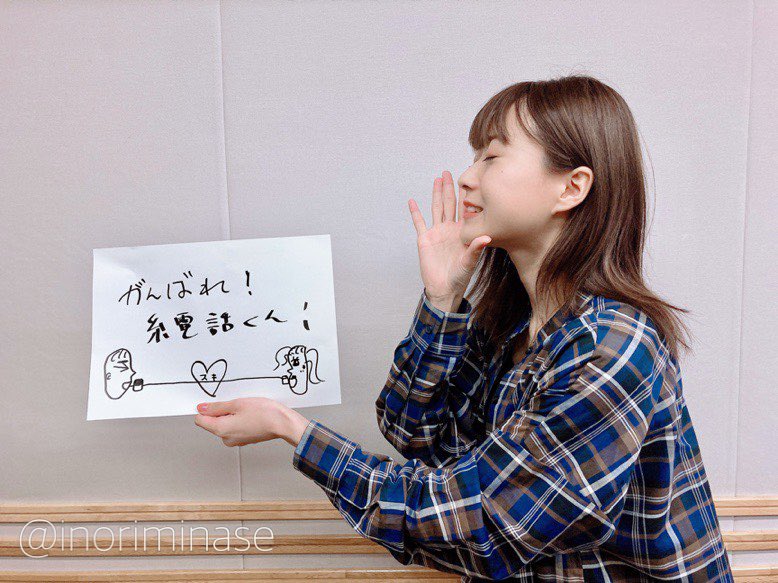 がんばれ！
糸電話くん！
スキ
@inoriminase